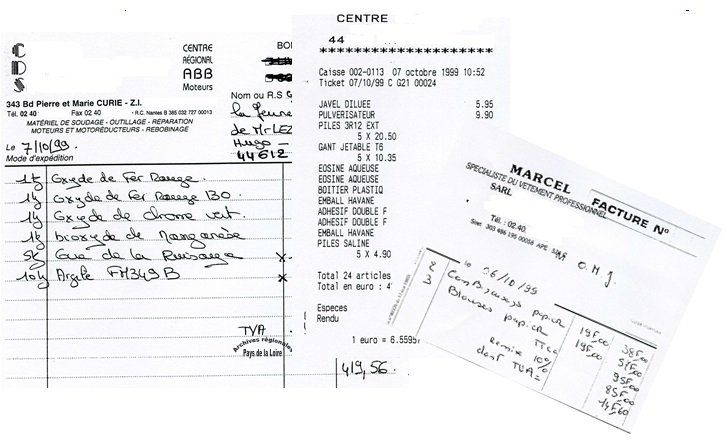 CDS
CENTRE
RÉGIONAL
ABB
Moteurs
343 Bd Pierre et Marie CURIE - Z.I.
Tél. 02 40 Fax 02 40 - R.C. Nantes B 385 032 727 00013
MATÉRIEL DE SOUDAGE - OUTILLAGE - RÉPARATION
MOTEURS ET MOTORÉDUCTEURS - REBOBINAGE
Nom ou R.S
la
de Mr LEZ
Hugo -
44612
Le 7/10/99
Mode d'expédition
1k Oxyde de Fer Rouge.
1k Oxyde de Fer Rouge 130
1k Oxyde de chrome vert.
1k bioxyde de Manganèse
5k de la x
10k Argile FM349B x
TVA
Archives régionales
Pays de la Loire
419,56
CENTRE
44
Caisse 002-0113 07 octobre 1999 10:52
Ticket 07/10/99 C G21 00024
JAVEL DILUEE 5.95
PULVERISATEUR 9.90
PILES 3R12 EXT
5 X 20.50
GANT JETABLE T6
5 X 10.35
EOSINE AQUEUSE
EOSINE AQUEUSE
BOITIER PLASTIQ
EMBALL HAVANE
ADHESIF DOUBLE F
ADHESIF DOUBLE F
EMBALL HAVANE
PILES SALINE
5 X 4.90
Total 24 articles
Total en euro : 4
Especes
Rendu
1 euro = 6.5595
MARCEL
SPECIALISTE DU VETEMENT PROFESSIONNEL
SARL
FACTURE N°
Tél. : 02.40
Siret 303 486 195 00056 APE
O.M.J.
le 06/10/99
2 Combinaisons papier 19F,00 38F,00
3 Blouses papier 19F,00 57F,00
TTC 95F,00
Remise 10% 85F,00
dont TVA = 14F,60